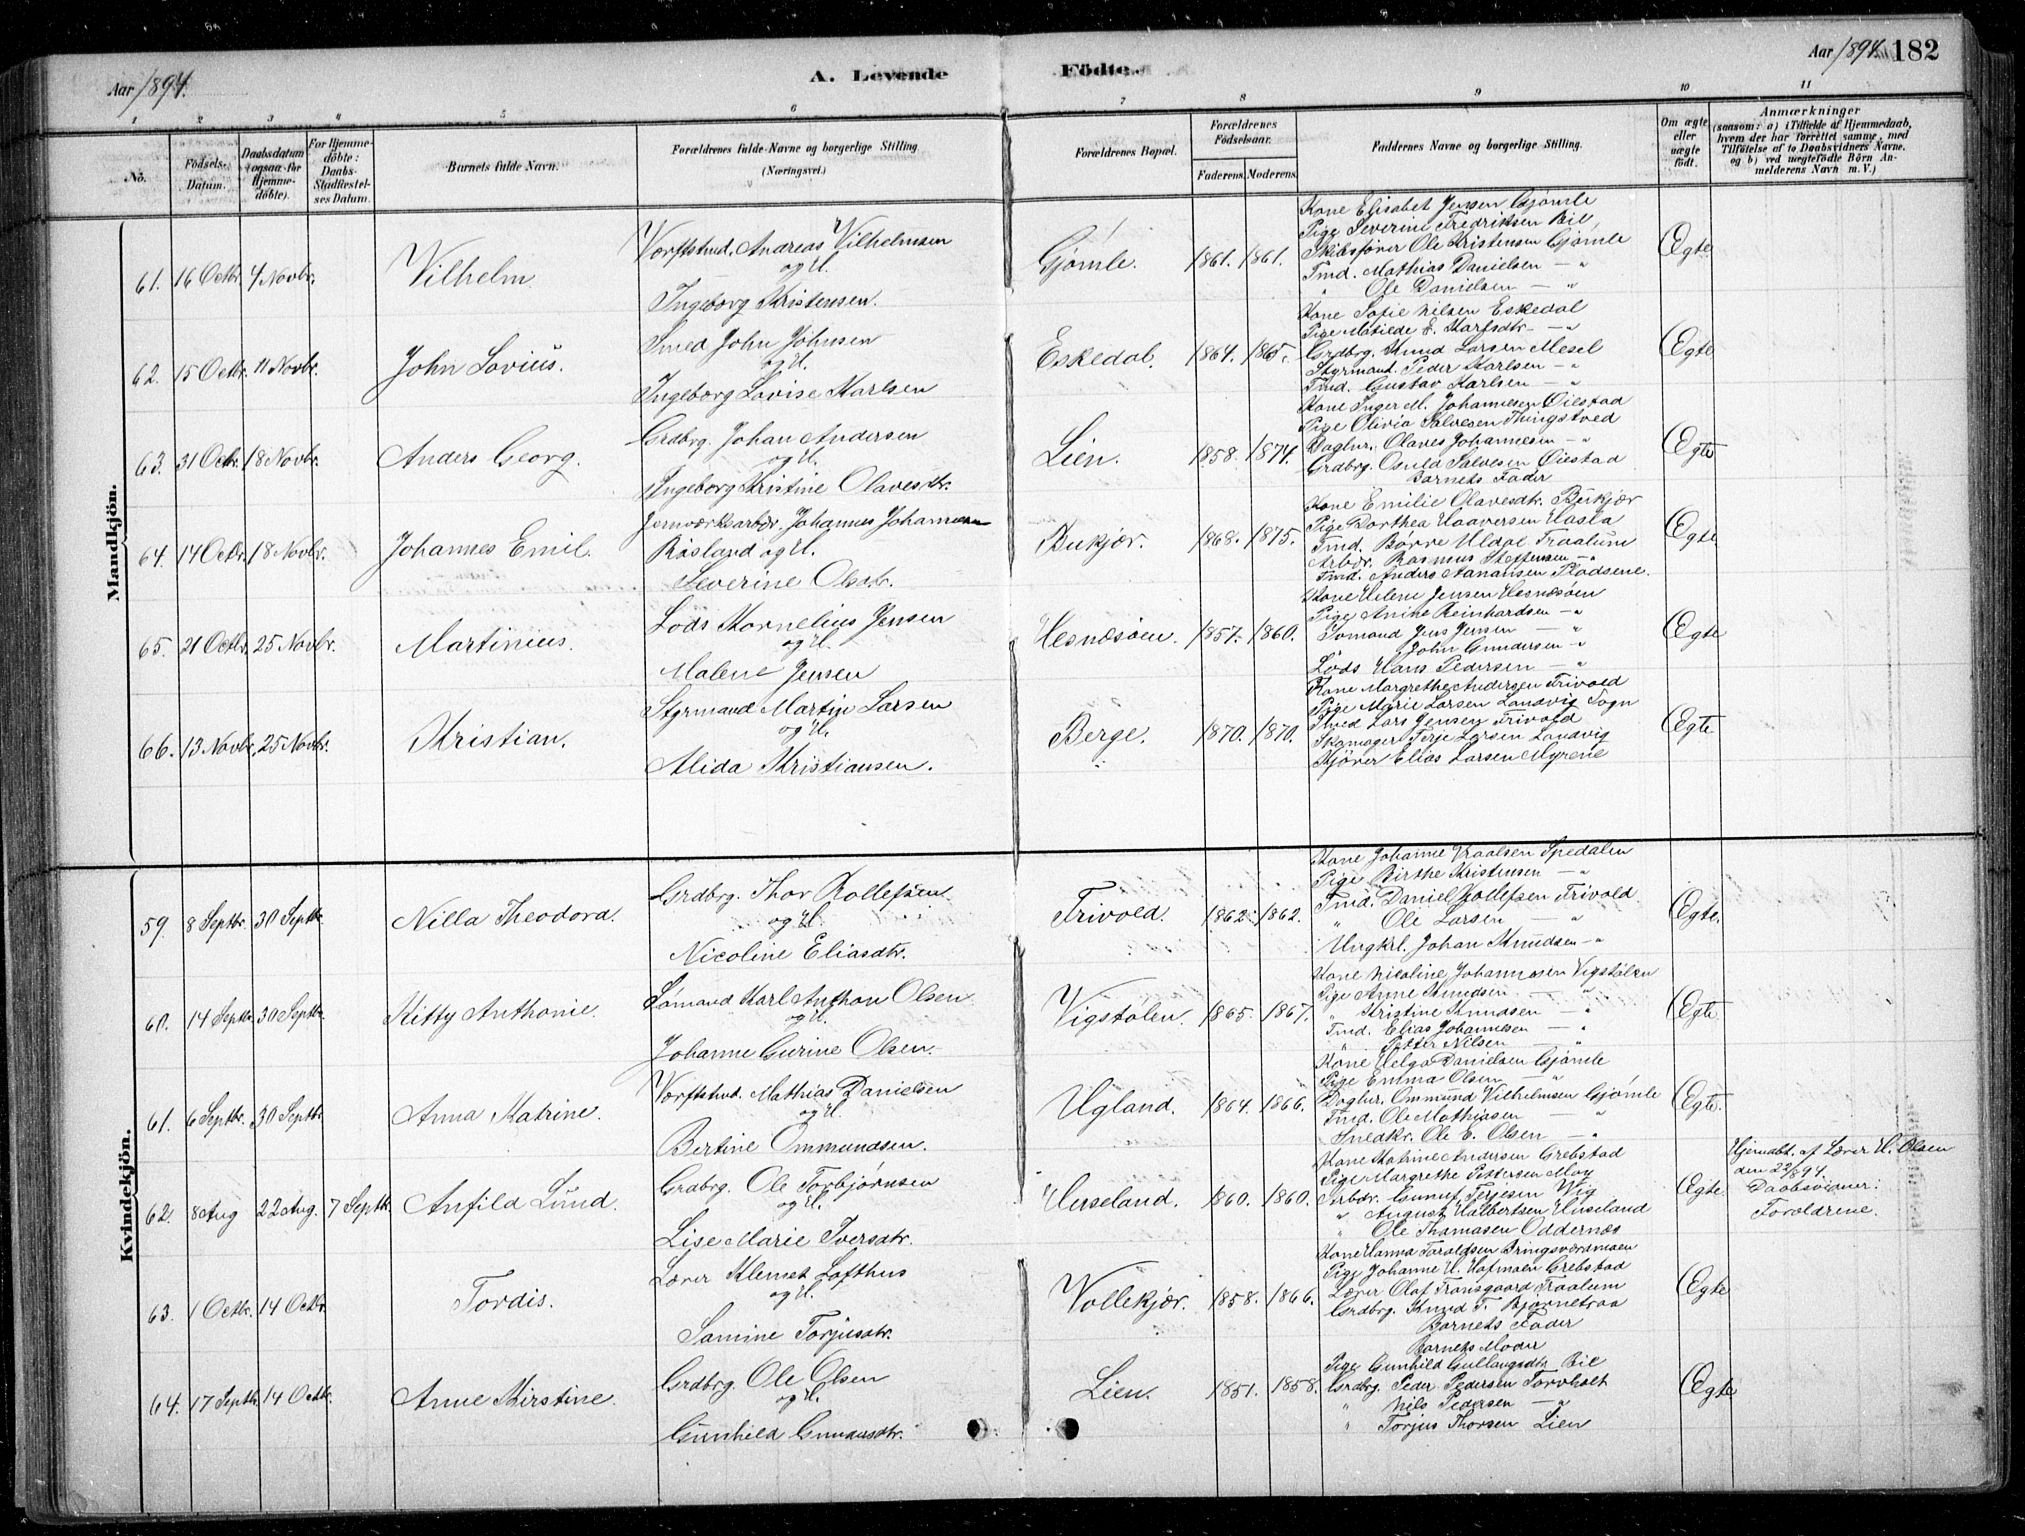 Aar 1894.
A. Levende
Födte.
Aar 1894. 182
1 2 3 4 5 6 7 8 9 10 11
No.
Födsels-Datum.
Daabsdatum (ogsaa for Hjemmedöbte).
For Hjemmedöbte: Daabs-Stadfæstelses Datum.
Barnets fulde Navn.
Forældrenes fulde Navne og borgerlige Stilling (Næringsvei.)
Forældrenes Bopæl.
Forældrenes Födselsaar.
Faderens. Moderens.
Faddernes Navne og borgerlige Stilling.
Om ægte eller uægte födt.
Anmærkninger
(saasom: a) i Tilfælde af Hjemmedaab,
hvem der har forrettet samme, med
Tilföielse af to Daabsvidners Navne.
og b) ved uægtefödte Börn An-
melderens Navn m. V.)
Mandkjön.
61. 16 Octbr. 4 Novbr. Vilhelm.
Værftstmd. Andreas Vilhelmsen
og H.
Ingeborg Kristensen.
Gjømle. 1861. 1861.
Kone Elisabet Jensen Gjømle
Pige Severine Fredriksen Bie
Skibsfører Ole Kristensen Gjømle
Tmd. Mathias Danielsen — "
" Ole Danielsen — "
Ægte
62. 15 Octbr. 11 Novbr. John Lovius.
Smed John Johnsen
og H.
Ingeborg Lovise Karlsen
Eskedal. 1864. 1865.
Kone Sofie Nilsen Eskedal
Pige Matilde E. Karlsdtr. — "
Grdbrg. Knud Larsen Mesel
Styrmand. Peder Karlsen — "
Tmd. Gustav Karlsen — "
Ægte
63. 31 Octbr. 18 Novbr. Anders Georg.
Grdbrg. Johan Andersen
og H.
Ingeborg Kristine Olavesdtr.
Lien. 1858. 1874.
Kone Inger M. Johannesen Øiestad
Pige Olivia Salvesen Thingstved
Daglnr. Olaves Johannesen — "
Grdbrg. Osuld Salvesen Øiestad
Barnets Fader
Ægte
64. 14 Octbr. 18 Novbr. Johannes Emil.
Jernværksarbdr. Johannes Johannesen
Risland og H.
Severine Olsdtr.
Bukjær. 1868. 1875.
Kone Emilie Olavesdtr. Bukjær
Pige Dorthea Haaversen Hasla
Tmd. Børre Uldal Fraalum
Arbdr. Rasmus Steffensen — "
Tmd. Anders Nanansen Pladsene.
Ægte
65. 21 Octbr. 25 Novbr. Martinius.
Lods Kornelius Jensen
og H.
Malene Jensen
Hesnæsøen. 1857. 1860.
Kone Helene Jensen Hesnæsøen
Pige Anine Reinhardsen — "
Sømand Jens Jensen — "
John Gundersen — "
Lods Hans Pedersen — "
Ægte
66. 13 Novbr. 25 Novbr. Kristian.
Styrmand Martin Larsen
og H.
Alida Kristiansen.
Berge. 1870. 1870.
Kone Margrethe Andersen Frivold
Pige Marie Larsen Landvig Sogn
Smed Lars Jensen Frivold
Skomager Terje Larsen Landvig
Kjører Elias Larsen Myrene
Ægte
Kvindekjön.
59. 8 Septbr. 30 Septbr. Nilla Theodora.
Grdbrg. Thor Rollefsen
og H.
Nicoline Eliasdtr.
Frivold. 1862. 1862.
Kone Johanne Kraalsen Spedalen
Pige Birthe Kristensen — "
Tmd. Daniel Rollefsen Frivold
" Ole Larsen — "
Ungkrl. Johan Knudsen — "
Ægte.
60. 14 Septbr. 30 Septbr. Kitty Anthonie.
Sømand Karl Anthon Olsen
og H.
Johanne Gurine Olsen.
Vigstølen. 1865. 1867.
Kone Nicoline Johannesen Vigstølen
Pige Anne Knudsen — "
" Kristine Knudsen — "
Tmd. Elias Johannesen — "
" Petter Nilsen — "
Ægte
61. 6 Septbr. 30 Septbr. Anna Katrine.
Værftstmd. Mathias Danielsen
og H.
Bertine Ommundsen.
Ugland. 1864. 1866.
Kone Helga Danielsen Gjømle
Pige Emma Olsen — "
Daglnr. Ommund Vilhelmsen Gjømle
Tmd. Ole Mathiasen — "
Snedkr. Ole E. Olsen — "
Ægte.
62. 8 Aug 22 Aug. 7 Septbr. Anfild Lund.
Grdbrg. Ole Torbjørnsen
og H.
Lise Marie Iversdtr.
Huseland. 1860. 1860.
Kone Katrine Andersen Grebstad
Pige Margrethe Pettersen Moy
Arbdr. Gunuf Terjesen Vig
" August Halbertsen Huseland
" Ole Thomasen Oddernæs
Ægte
Hjemdbt. af Lærer H. Olsen
den 22/8 94.
Daabsvidner:
Forældrene.
63. 1 Octbr. 14 Octbr. Tordis.
Lærer Klemet Lofthus
og H.
Samine Torjusdtr.
Vollekjær. 1858. 1866.
Kone Hanna Taraldsen Bringsværdmoen
Pige Johanne H. Hafmoen Grebstad
Lærer Olaf Transgaard Fraalum
Grdbrg. Knud T. Bjørnetraa
Barnets Fader
Ægte
64. 17 Septbr. 14 Octbr. Anne Kirstine.
Grdbrg. Ole Olsen
og H.
Gunhild Gundersdtr.
Lien. 1851. 1858.
Barnets Moder
Pige Gunhild Gullaugsdtr. Bie
Grdbrg. Peder Pedersen Torvholt
" Nils Pedersen — "
" Torjus Thorsen Lien
Ægte